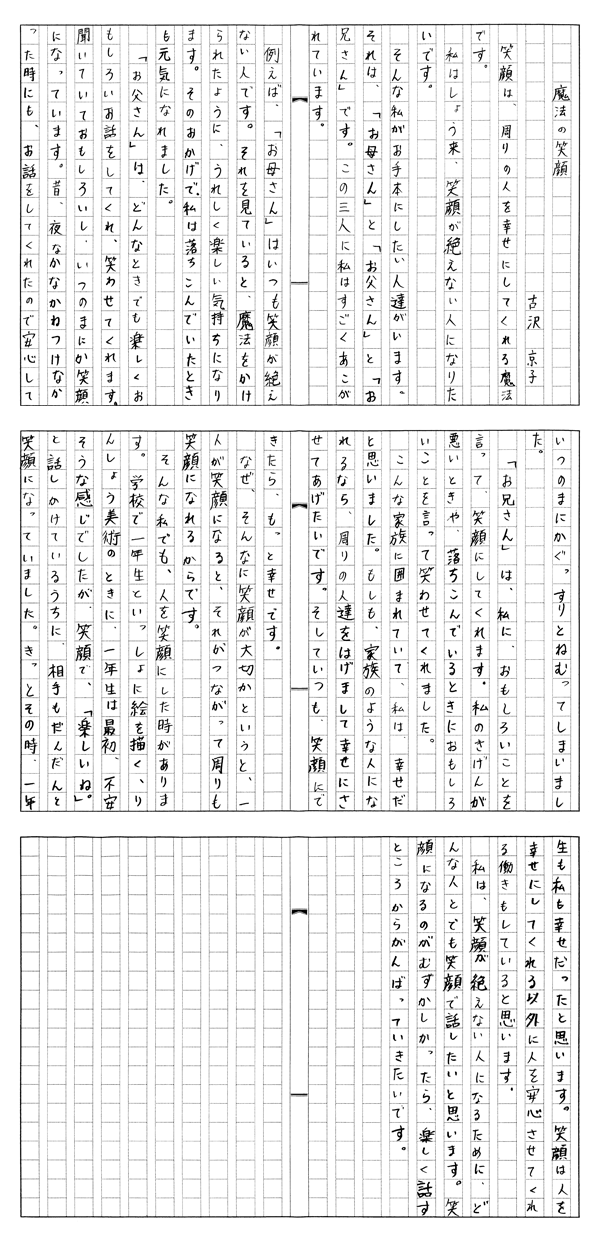 魔法の笑顔
古沢 京子
笑顔は、周りの人を幸せにしてくれる魔法
です。
私はしょう来、笑顔が絶えない人になりた
いです。
そんな私がお手本にしたい人達がいます。
それは、「お母さん」と「お父さん」と「お
兄さん」です。この三人に私はすごくあこが
れています。
例えば、「お母さん」はいつも笑顔が絶え
ない人です。それを見ていると、魔法をかけ
られたように、うれしく楽しい気持ちになり
ます。そのおかげで、私は落ちこんでいたとき
も元気になれました。
「お父さん」は、どんなときでも楽しくお
もしろいお話をしてくれ、笑わせてくれます。
聞いていておもしろいし、いつのまにか笑顔
になっています。昔、夜なかなかねつけなか
った時にも、お話をしてくれたので安心して
いつのまにかぐっすりとねむってしまいまし
た。
「お兄さん」は、私に、おもしろいことを
言って、笑顔にしてくれます。私のきげんが
悪いときや、落ちこんでいるときにおもしろ
いことを言って笑わせてくれました。
こんな家族に囲まれていて、私は、幸せだ
と思いました。もしも、家族のような人にな
れるなら、周りの人達をはげまして幸せにさ
せてあげたいです。そしていつも、笑顔にで
きたら、もっと幸せです。
なぜ、そんなに笑顔が大切かというと、一
人が笑顔になると、それがつながって周りも
笑顔になれるからです。
そんな私でも、人を笑顔にした時がありま
す。学校で一年生といっしょに絵を描く、り
んしょう美術のときに、一年生は最初、不安
そうな感じでしたが、笑顔で、「楽しいね」
と話しかけているうちに、相手もだんだんと
笑顔になっていました。きっとその時、一年
生も私も幸せだったと思います。笑顔は人を
幸せにしてくれる以外に人を安心させてくれ
る働きもしていると思います。
私は、笑顔が絶えない人になるために、ど
んな人とでも笑顔で話したいと思います。笑
顔になるのがむずかしかったら、楽しく話す
ところからがんばっていきたいです。